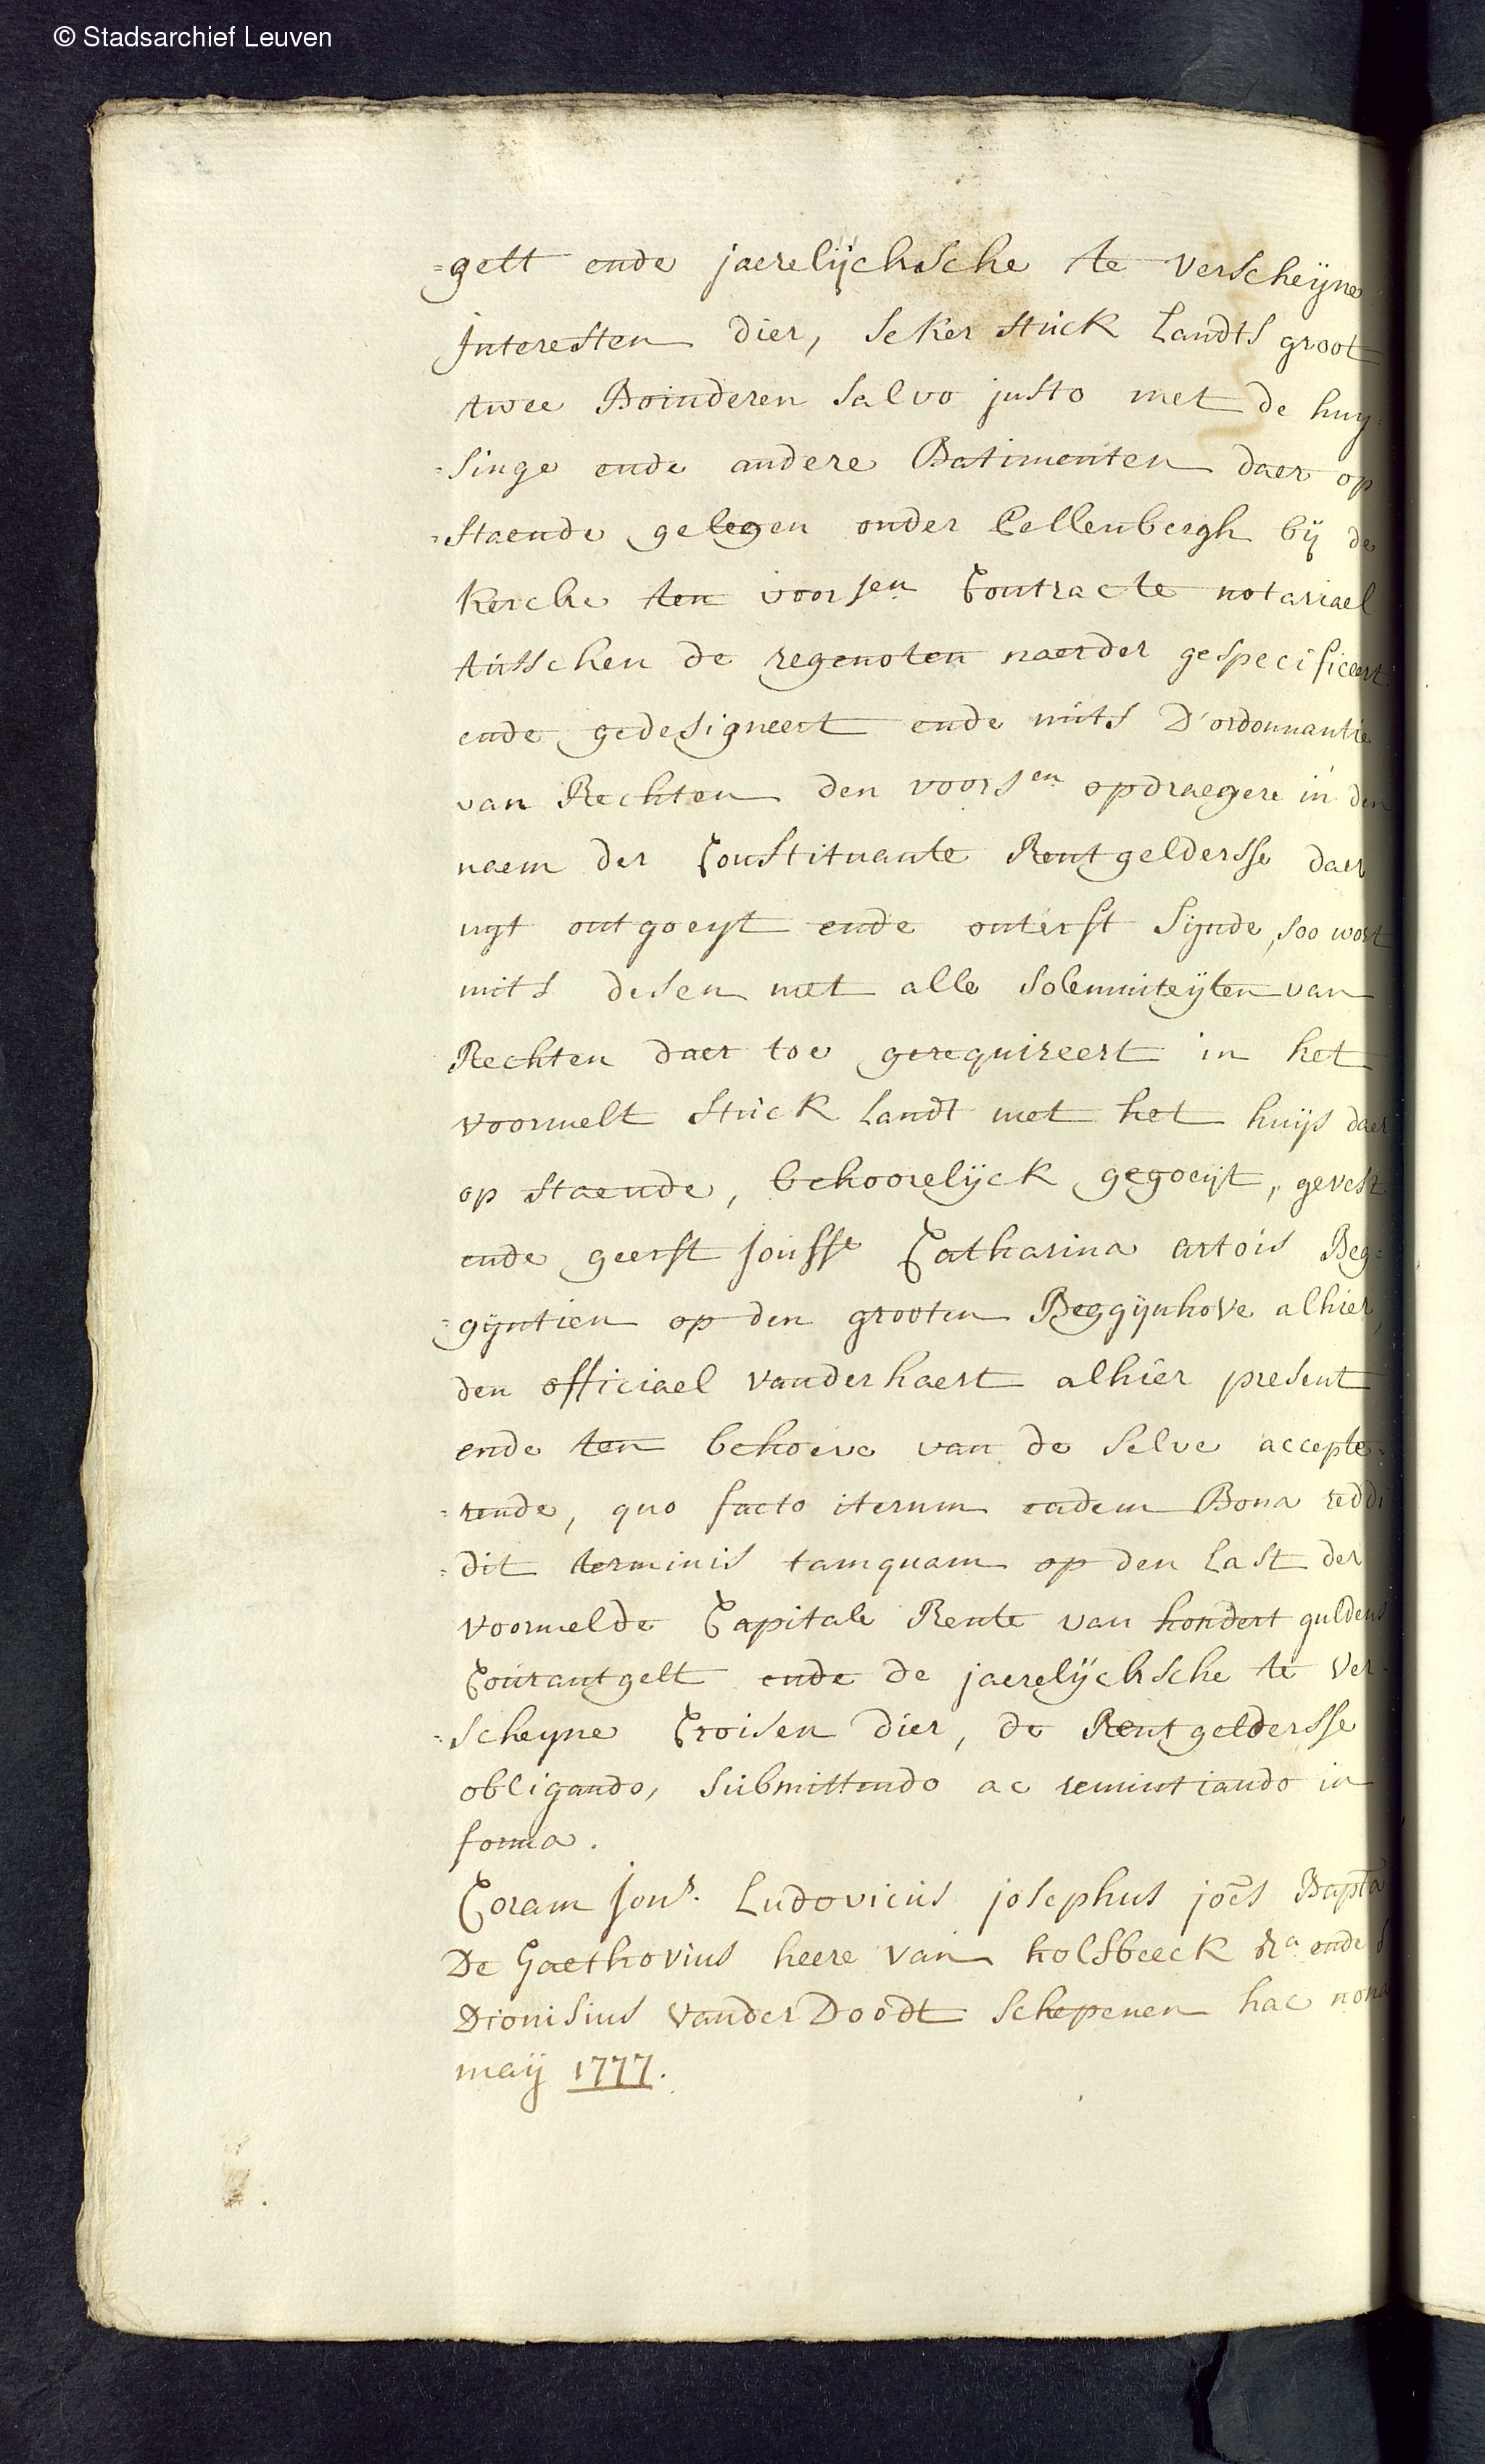 © Stadsarchief Leuven
=gelt ende jaerelijcksche te verscheijne
Interesten dier, seker stuck Landts groot
twee Boinderen salvo justo met de huy=
=singe ende andere Batimenten daer op
=staende gelegen onder Pellenbergh bij de
Kercke ten voorsen Contracte notariael
tusschen de regenoten naerder gespecificeert
ende gedesigneert ende mits D'ordonnantie
van Rechten den voorsen opdraegere in den
naem der Constituante Rentgeldersse daer
uyt ontgoeyt ende onterft sijnde, soo wort
mits desen met alle solemniteijten van
Rechten daer toe gerequireert in het
voormelt stuck Landt met het huijs daer
op staende, behoorelijck gegoeijt, gevest
ende geerft Jouffe Catharina artois Beg=
=gijntien op den grooten Beggijnhove alhier,
den officiael vanderhaert alhier present
ende ten behoeve van de selve accepte=
=rende, quo facto iterum eadem Bona reddi
=dit terminis tamquam op den Last der
voormelde Capitale Rente van hondert guldens
Courantgelt ende de jaerelijcksche te ver=
=scheyne Croisen dier, de Rentgeldersse
obligando, submittendo ac renuntiando in
forma.
Coram Jonr. Ludovicus josephus joēs Bapta
De Gaethovius heere van holsbeeck &a ende
Dionisius vander Doodt schepenen hac nona
maij 1777.